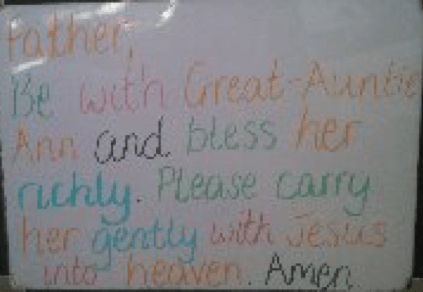 Father,
Be with Great-Auntie
Ann and bless her
richly. Please carry
her gently with Jesus
into heaven. Amen.